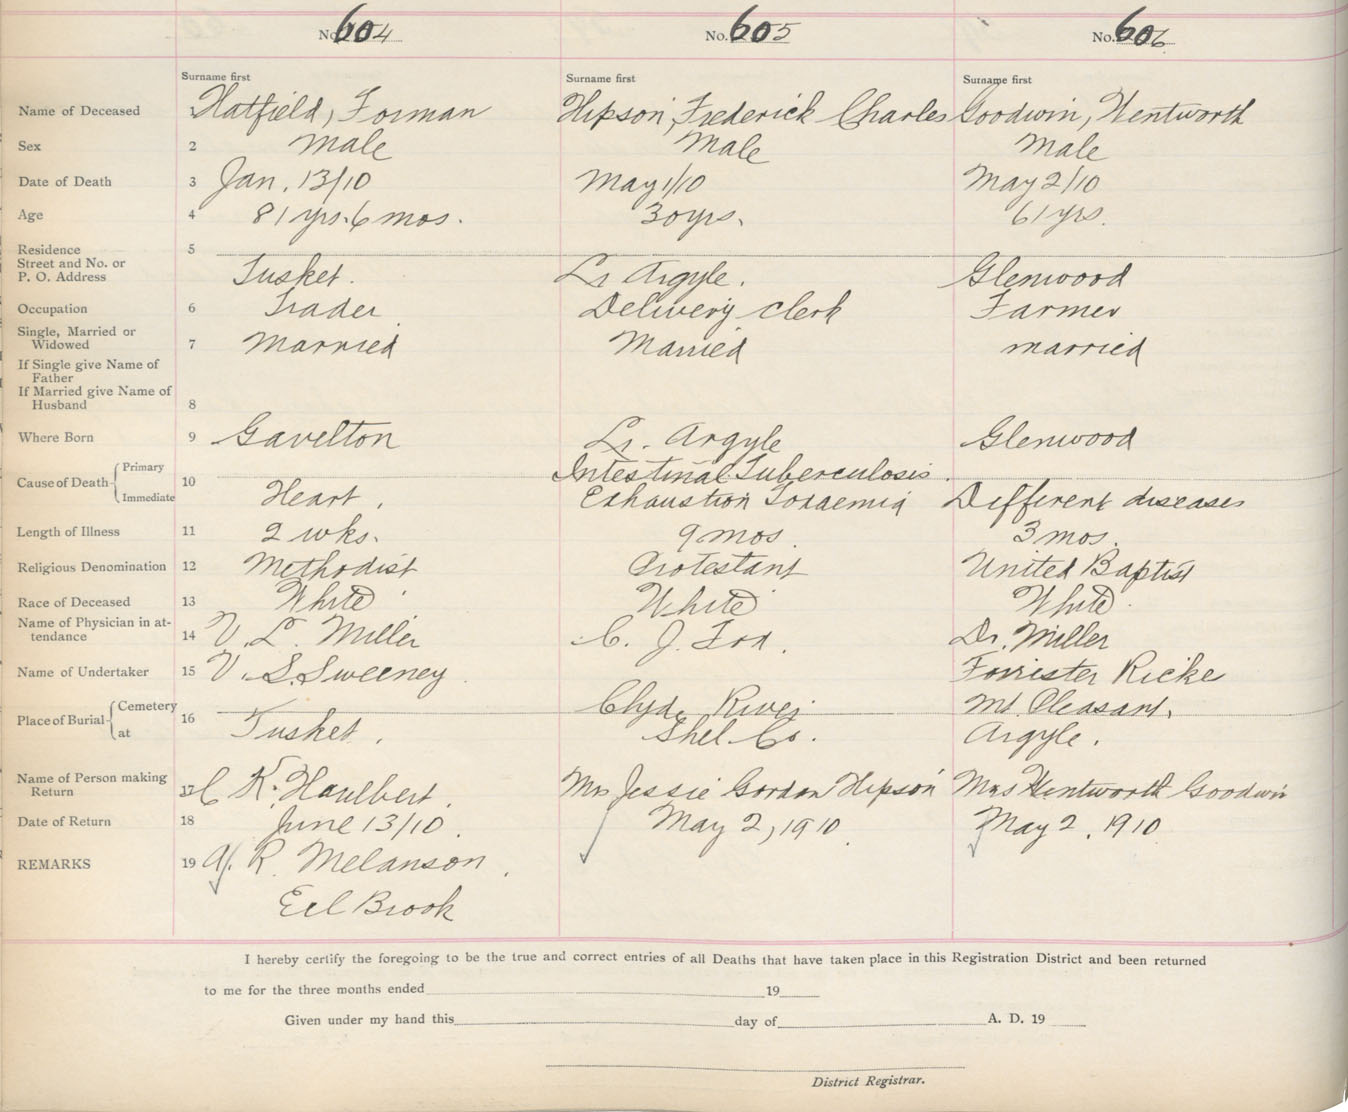 No. 604 No. 605 No. 606
Surname first Surname first Surname first
Name of Deceased 1 Hatfield, Forman Hipson, Frederick Charles Goodwin, Wentworth
Sex 2 Male Male Male
Date of Death 3 Jan. 13/10 May 1/10 May 2/10
Age 4 81 yrs. 6 mos. 30 yrs. 61 yrs.
Residence 5
Street and No. or
P. O. Address Tusket. Lr Argyle. Glenwood
Occupation 6 Trader Delivery clerk Farmer
Single, Married or
Widowed 7 Married Married married
If Single give Name of
Father
If Married give Name of
Husband 8
Where Born 9 Gavelton Lr. Argyle Glenwood
Cause of Death Primary 10 Intestinal Tuberculosis.
Immediate Heart. Exhaustion Toxaemia Different diseases
Length of Illness 11 2 wks. 9 mos. 3 mos.
Religious Denomination 12 Methodist Protestant United Baptist
Race of Deceased 13 White White White
Name of Physician in at-
tendance 14 V. L. Miller C. J. Fox. Dr. Miller
Name of Undertaker 15 V. S. Sweeney. Forrister Ricke
Place of Burial Cemetery 16 Clyde River Mt. Pleasant.
at Tusket. Shel. Co. Argyle.
Name of Person making
Return 17 C K. Haulbert. Mrs Jessie Gordon Hipson Mrs Wentworth Goodwin
Date of Return 18 June 13/10. May 2, 1910. May 2, 1910
REMARKS 19 A. R. Melanson.
Eel Brook
I hereby certify the foregoing to be the true and correct entries of all Deaths that have taken place in this Registration District and been returned
to me for the three months ended 19
Given under my hand this day of A. D. 19
District Registrar.